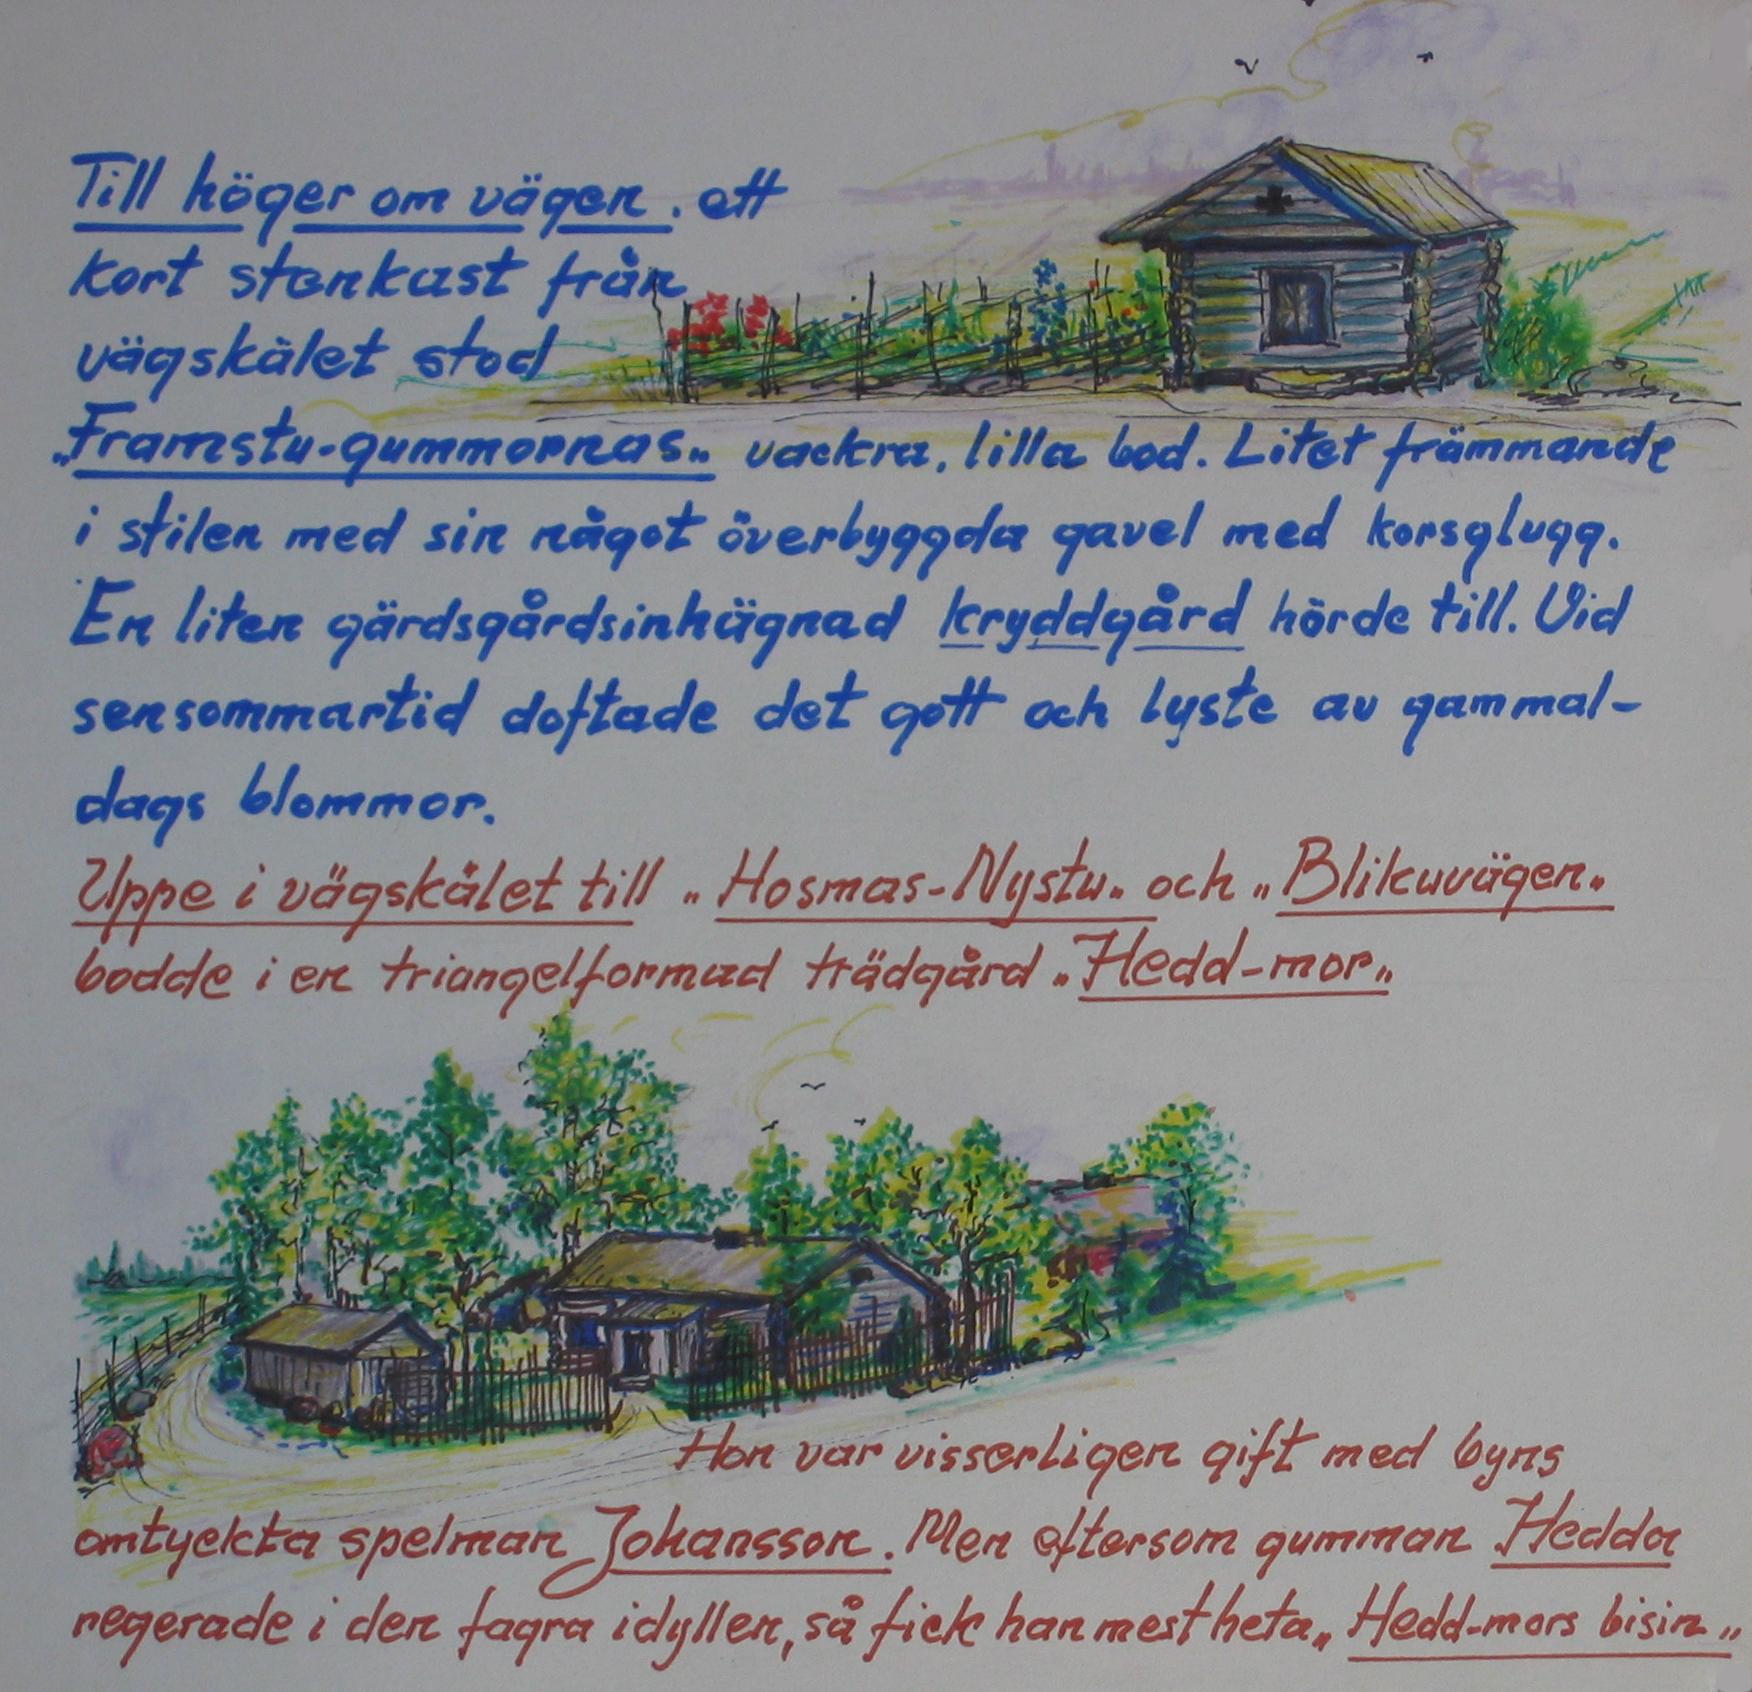 Till höger om vägen. ett
kort stenkast från
vägskälet stod
„Framstu-gummornas„ vackra, lilla bod. Litet främmande
i stilen med sin något överbyggda gavel med korsglugg.
En liten gärdsgårdsinhägnad kryddgård hörde till. Vid
sensommartid doftade det gott och lyste av gammal-
dags blommor.
Uppe i vägskälet till „Hosmas-Nystu„ och „Blikuvägen„
bodde i en triangelformad trädgård „Hedd-mor„
Hon var visserligen gift med byns
omtyckta spelman Johansson. Men eftersom gumman Hedda
regerade i den fagra idyllen, så fick han mest heta „Hedd-mors bisin„